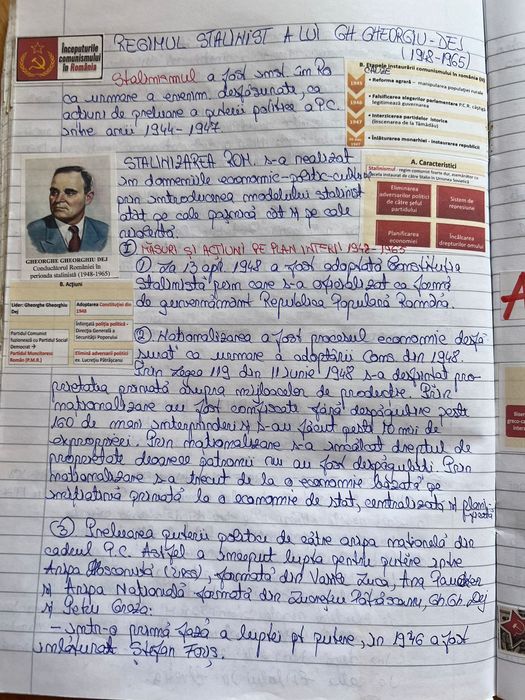 REGIMUL STALINIST A LUI GH GHEORGHIU-DEJ
(1948-1965)
Începuturile
comunismului
în România
Stalinismul a fost
ca urmare a evenim. desfășurate, ca
acțiuni de preluare a puterii politice a P.C.
între anii 1944-1947
B. Etapele instaurării comunismului în românia (II)
CAUZE
1945
• Reforma agrară – manipularea populației rurale
1946
• Falsificarea alegerilor parlamentare P.C.R. câștigă
legitimează guvernarea
1947
• Interzicerea partidelor istorice
(înscenarea de la Tămădău)
1947
• Înlăturarea monarhiei - instaurarea republicii
STALINIZAREA ROM. s-a realizat
în domeniile economic-politic-cultural
prin introducerea modelului stalinist
atât pe cale pașnică cât și pe cale
violentă.
A. Caracteristici
Stalinismul - regim comunist foarte dur, asemănător cu
acela instaurat de către Stalin în Uniunea Sovietică
Eliminarea
adversarilor politici
de către șeful
partidului
Sistem de
represiune
Planificarea
economiei
Încălcarea
drepturilor omului
GHEORGHE GHEORGHIU DEJ
Conducătorul României în
perioada stalinistă (1948-1965)
I MĂSURI ȘI ACȚIUNI PE PLAN INTERN
① La 13 apr. 1948 a fost adoptată Constituția
stalinistă prin care s-a oficializat ca formă
de guvernământ Republica Populară Română.
B. Acțiuni
Lider: Gheorghe Gheorghiu
Dej
Adoptarea Constituției din
1948
Partidul Comunist
fuzionează cu Partidul Social
Democrat →
Partidul Muncitoresc
Român (P.M.R.)
Înființată poliția politică -
Direcția Generală a
Securității Poporului
Elimină adversarii politici
ex. Lucrețiu Pătrășcanu
② Naționalizarea a fost procesul economic desfă-
șurat ca urmare a adoptării Cons. din 1948
Prin Legea 119 din 11 iunie 1948 s-a desființat pro-
prietatea privată asupra mijloacelor de producție. Prin
naționalizare au fost confiscate fără despăgubire peste
160 de mari întreprinderi și s-au făcut peste 10 mii de
exproprieri. Prin naționalizare s-a încălcat dreptul de
proprietate deoarece patronii nu au fost despăgubiți. Prin
naționalizare s-a trecut de la o economie bazată pe
inițiativă privată la o economie de stat, centralizată și planifi-
cată
③ Preluarea puterii politice de către aripa națională din
cadrul P.C. Astfel a început lupta pentru putere între
Aripa Moscovită (URSS), formată din Vasile Luca, Ana Pauker
și Aripa Națională formată din Lucrețiu Pătrășcanu, Gh. Gh. Dej
și Petru Groza:
- într-o primă fază a luptei pt putere, în 1946 a fost
înlăturat Ștefan Foriș.